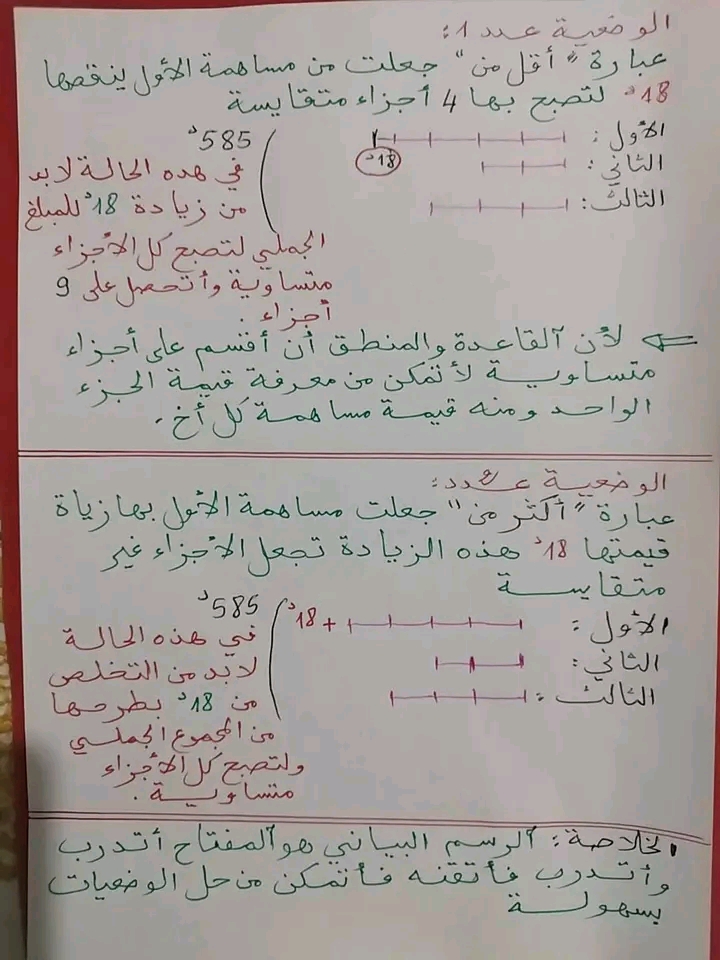 الوضعية عدد 1:
عبارة "أقل من" جعلت من مساهمة الأول ينقصها
18د لتصبح بها 4 أجزاء متقايسة
الأول:
18د
الثاني:
الثالث:
585د
في هذه الحالة لابد
من زيادة 18د للمبلغ
الجملي لتصبح كل الأجزاء
متساوية وأتحصل على 9
أجزاء.
⇐ لأن القاعدة والمنطق أن أقسم على أجزاء
متساوية لأتمكن من معرفة قيمة الجزء
الواحد ومنه قيمة مساهمة كل أخ.
الوضعية عدد 2:
عبارة "أكثر من" جعلت مساهمة الأول بها زياة
قيمتها 18د هذه الزيادة تجعل الأجزاء غير
متقايسة
الأول:
+ 18د
الثاني:
الثالث:
585د
في هذه الحالة
لابد من التخلص
من 18د بطرحها
من المجموع الجملي
ولتصبح كل الأجزاء
متساوية.
الخلاصة: الرسم البياني هو المفتاح أتدرب
وأتدرب فأتقنه فأتمكن من حل الوضعيات
بسهولة